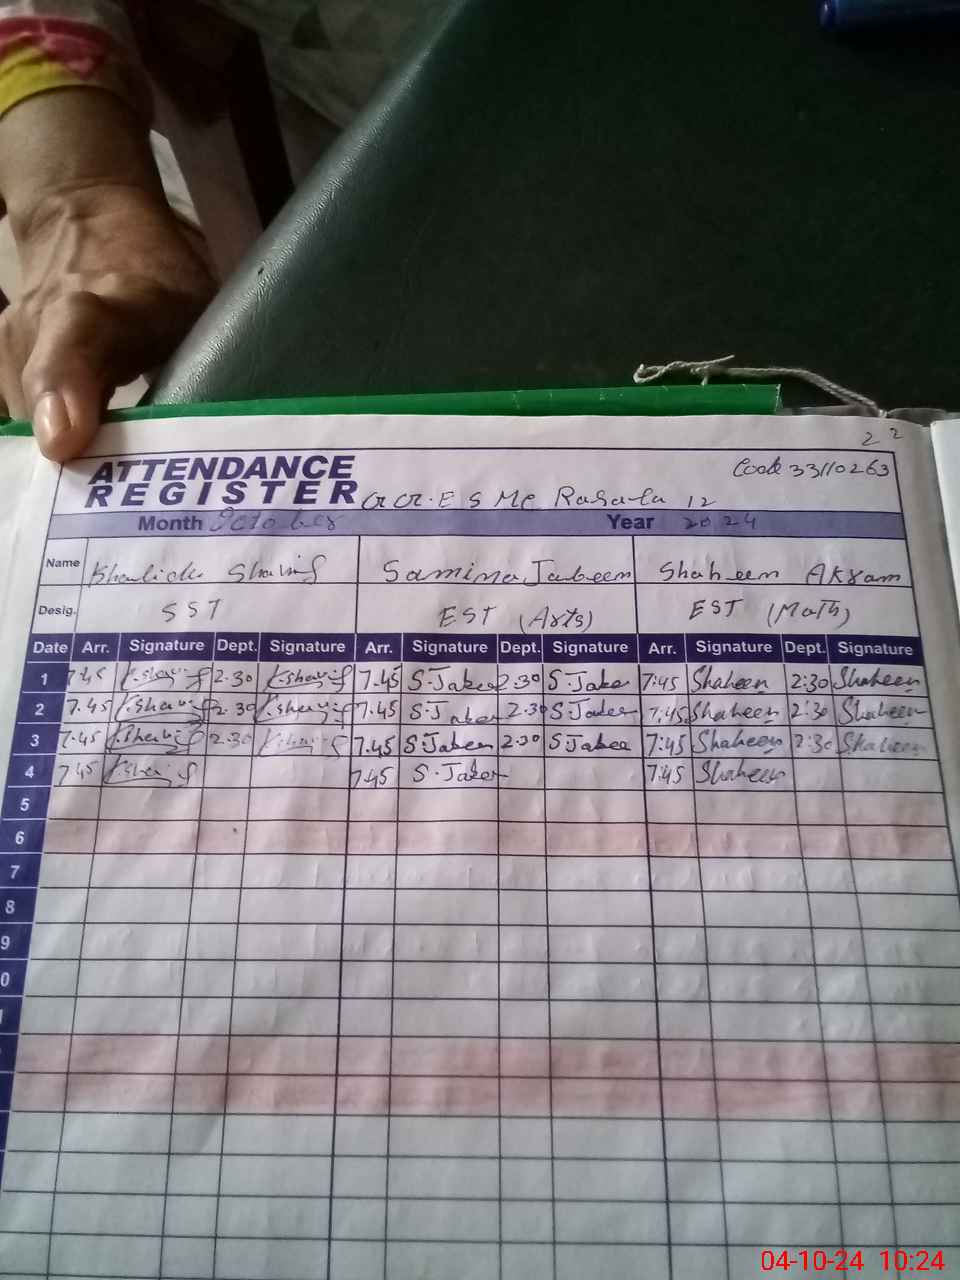 2 2
ATTENDANCE
Code 33110263
REGISTER E S Mc Rasala 12
Month October Year 2024
Name Khalida Sharif Samina Jabeen Shaheen Akram
Desig. SST EST (Arts) EST (Math)
Date Arr. Signature Dept. Signature Arr. Signature Dept. Signature Arr. Signature Dept. Signature
1 7.45 K.sharif 2.30 K.sharif 7.45 S.Jabeen 2.30 S.Jabeen 7:45 Shaheen 2:30 Shaheen
2 7.45 K.sharif 2.30 K.sharif 7.45 S.Jabeen 2.30 S.Jabeen 7:45 Shaheen 2:30 Shaheen
3 7.45 K.sharif 2.30 K.sharif 7.45 S.Jabeen 2.30 S.Jabeen 7:45 Shaheen 2:30 Shaheen
4 7.45 K.sharif 7.45 S.Jabeen 7:45 Shaheen
5
6
7
8
9
0
04-10-24 10:24